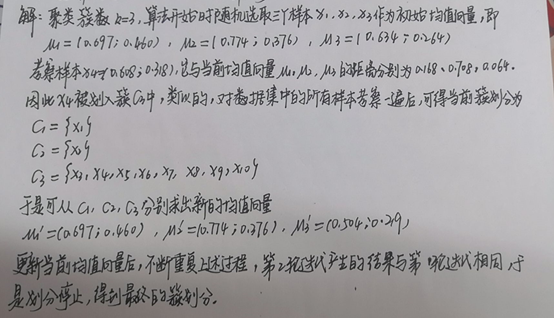 解：聚类簇数 k=3，算法开始时随机选取三个样本 x₁, x₂, x₃ 作为初始均值向量，即
μ₁=(0.697;0.460)，μ₂=(0.774;0.376)，μ₃=(0.634;0.264)
考察样本x₄=(0.608;0.318)，它与当前均值向量μ₁,μ₂,μ₃的距离分别为0.168、0.708、0.064.
因此x₄被划入簇C₃中，类似的，对数据集中的所有样本考察一遍后，可得当前簇划分为
C₁={x₁}
C₂={x₂}
C₃={x₃,x₄,x₅,x₆,x₇,x₈,x₉,x₁₀}
于是可从C₁,C₂,C₃分别求出新的均值向量
μ₁'=(0.697;0.460)，μ₂'=(0.774;0.376)，μ₃'=(0.504;0.219)
更新当前均值向量后，不断重复上述过程，第2轮迭代产生的结果与第轮迭代相同，于
是划分停止，得到最终的簇划分。